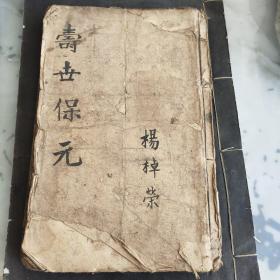 壽世保元
楊棹榮